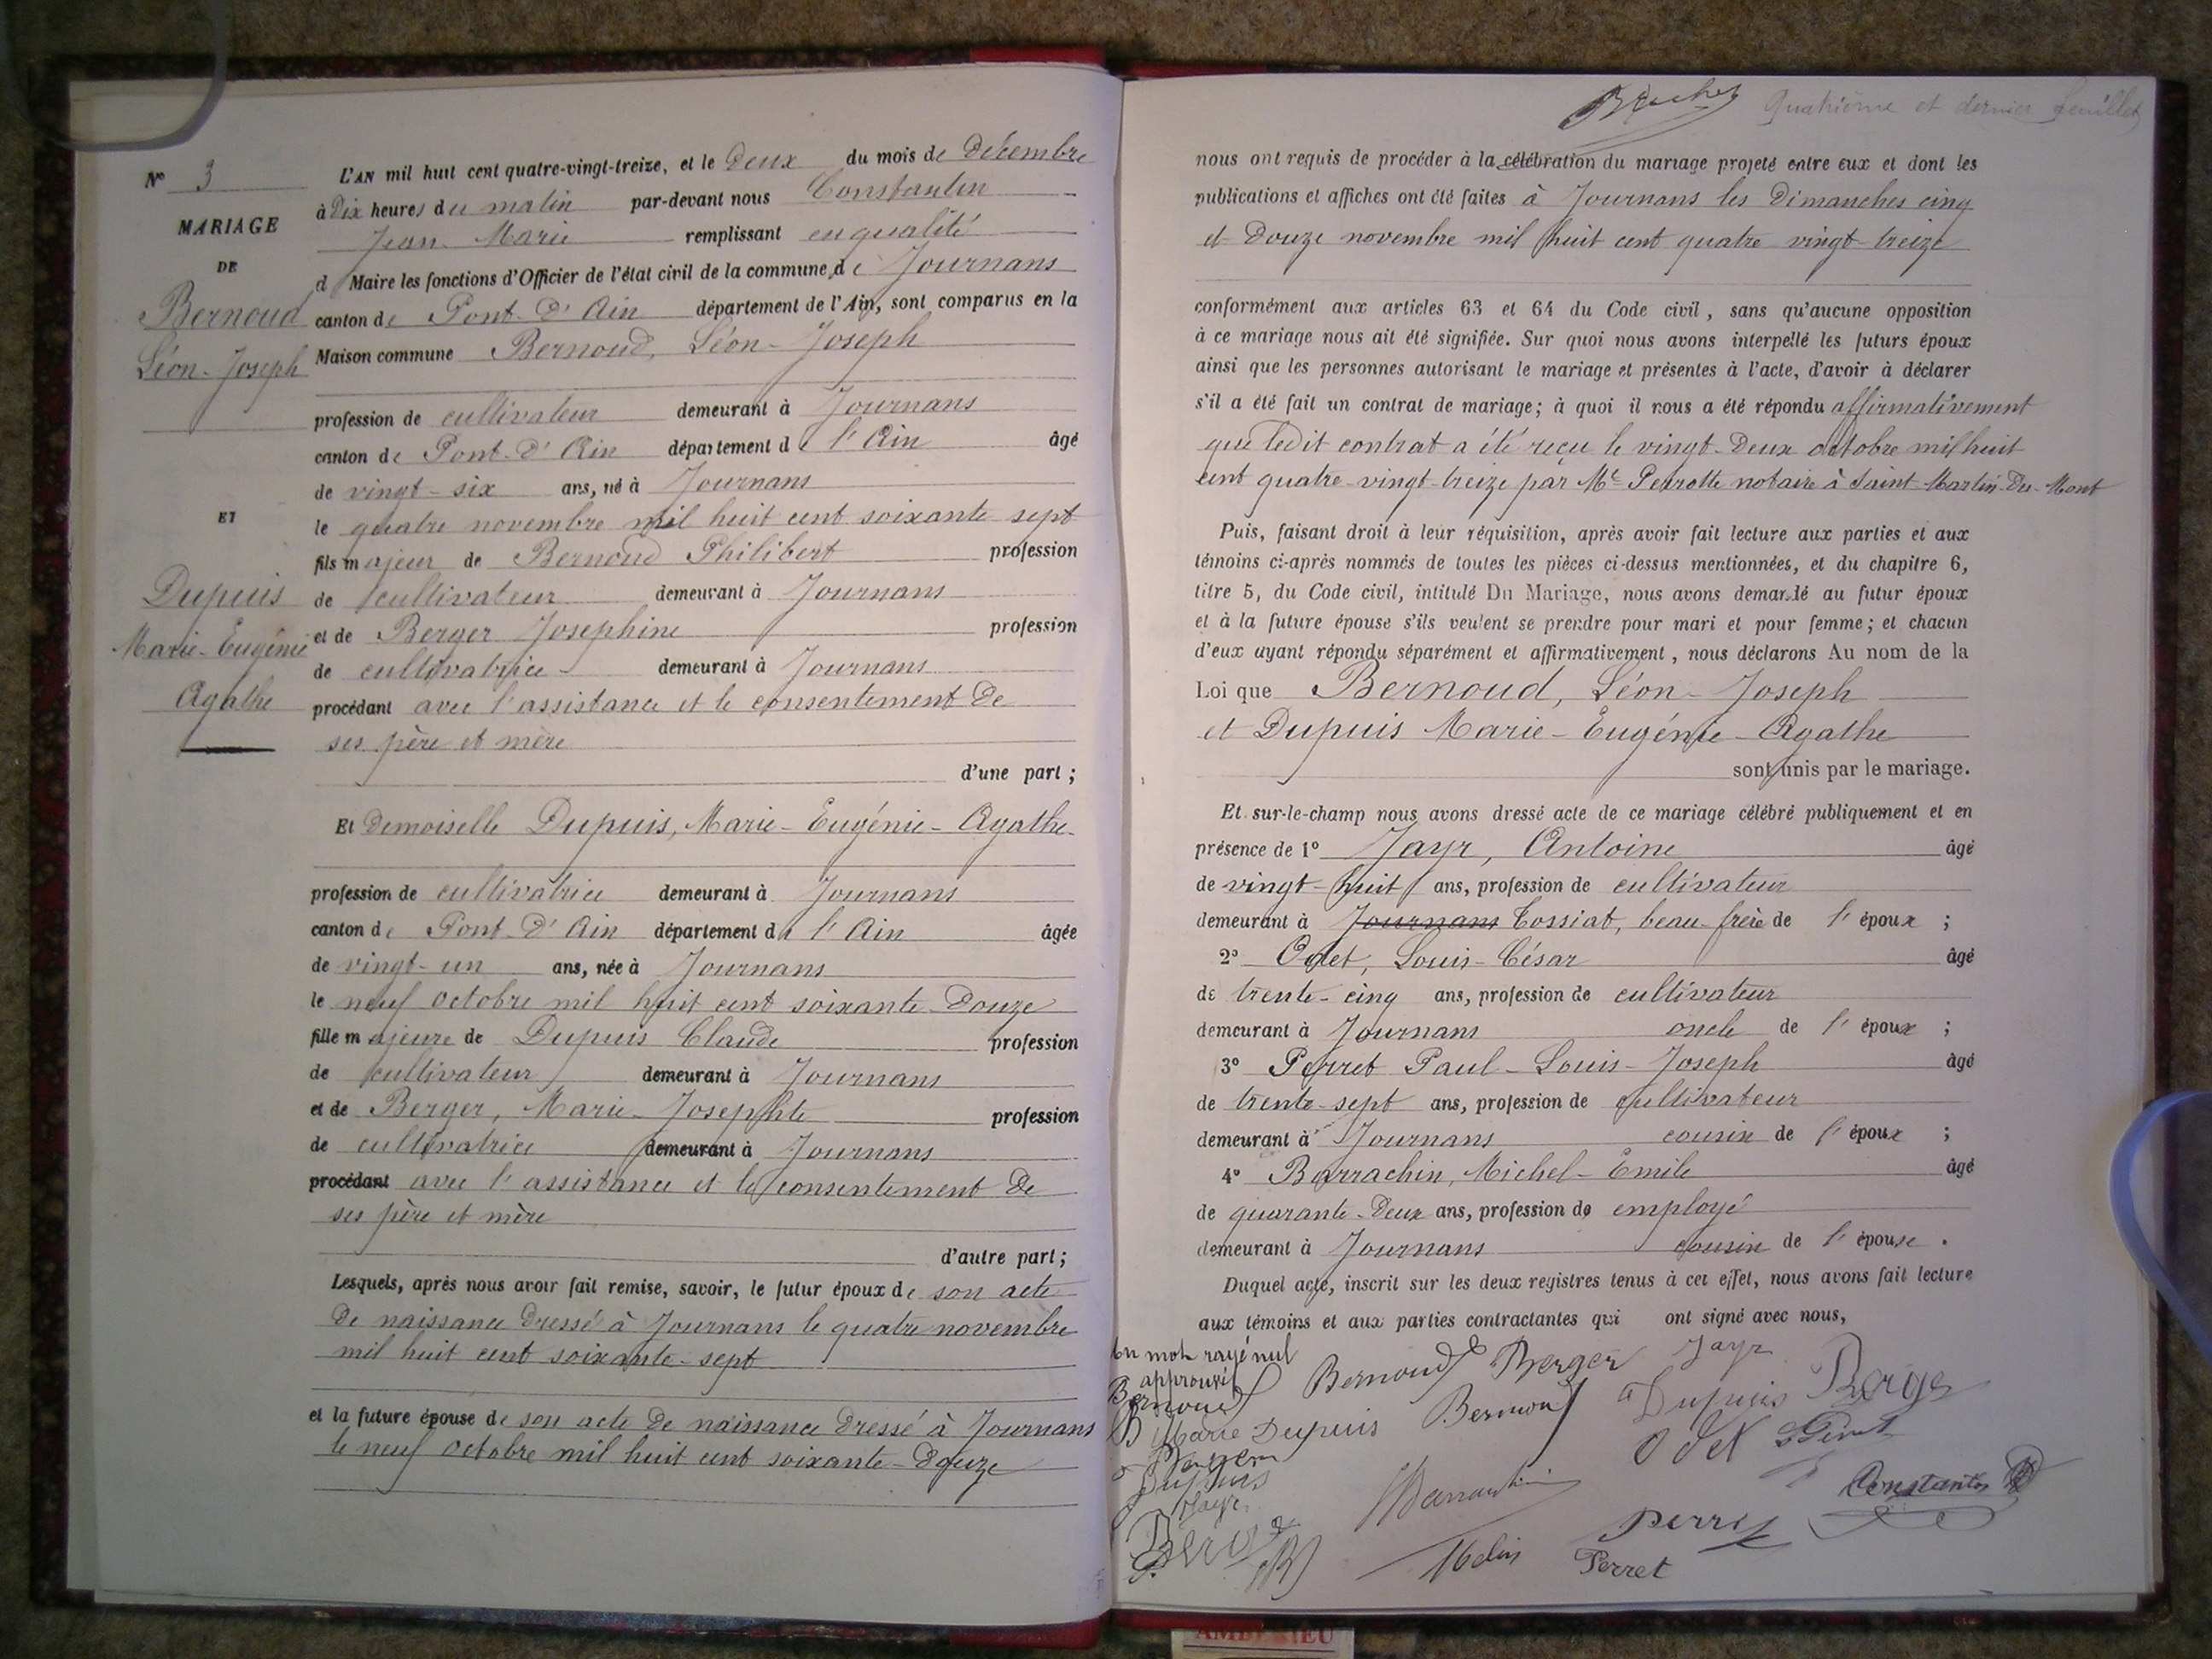 N° 3
MARIAGE
DE
Bernoud
Léon-Joseph
ET
Dupuis
Marie-Eugénie
Agathe
L'AN mil huit cent quatre-vingt-treize, et le Deux du mois de Décembre
à Dix heures du matin par-devant nous Constantin
Jean Marie remplissant en qualité
d Maire les fonctions d'Officier de l'état civil de la commune de Journans
canton de Pont-D'Ain département de l'Ain, sont comparus en la
Maison commune Bernoud, Léon-Joseph
profession de cultivateur demeurant à Journans
canton de Pont-D'Ain département de l'Ain âgé
de vingt-six ans, né à Journans
le quatre novembre mil huit cent soixante sept
fils majeur de Bernoud Philibert profession
de cultivateur demeurant à Journans
et de Berger Josephine profession
de cultivatrice demeurant à Journans
procédant avec l'assistance et le consentement de
ses père et mère
d'une part ;
Et Demoiselle Dupuis, Marie-Eugénie-Agathe
profession de cultivatrice demeurant à Journans
canton de Pont-D'Ain département de l'Ain âgée
de vingt-un ans, née à Journans
le neuf octobre mil huit cent soixante-Douze
fille majeure de Dupuis Claude profession
de cultivateur demeurant à Journans
et de Berger, Marie-Josephte profession
de cultivatrice demeurant à Journans
procédant avec l'assistance et le consentement de
ses père et mère
d'autre part ;
Lesquels, après nous avoir fait remise, savoir, le futur époux de son acte
de naissance dressé à Journans le quatre novembre
mil huit cent soixante-sept
et la future épouse de son acte de naissance dressé à Journans
le neuf octobre mil huit cent soixante-Douze
Quatrième et dernier feuillet
nous ont requis de procéder à la célébration du mariage projeté entre eux et dont les
publications et affiches ont été faites à Journans les Dimanches cinq
et Douze novembre mil huit cent quatre vingt treize
conformément aux articles 63 et 64 du Code civil, sans qu'aucune opposition
à ce mariage nous ait été signifiée. Sur quoi nous avons interpellé les futurs époux
ainsi que les personnes autorisant le mariage et présentes à l'acte, d'avoir à déclarer
s'il a été fait un contrat de mariage; à quoi il nous a été répondu affirmativement
que ledit contrat a été reçu le vingt-Deux octobre mil huit
cent quatre-vingt-treize par Me Perrotte notaire à Saint-Martin-Du-Mont
Puis, faisant droit à leur réquisition, après avoir fait lecture aux parties et aux
témoins ci-après nommés de toutes les pièces ci-dessus mentionnées, et du chapitre 6,
titre 5, du Code civil, intitulé Du Mariage, nous avons demandé au futur époux
et à la future épouse s'ils veulent se prendre pour mari et pour femme; et chacun
d'eux ayant répondu séparément et affirmativement, nous déclarons Au nom de la
Loi que Bernoud, Léon-Joseph
et Dupuis Marie-Eugénie-Agathe
sont unis par le mariage.
Et sur-le-champ nous avons dressé acte de ce mariage célébré publiquement et en
présence de 1° Jayr, Antoine âgé
de vingt-huit ans, profession de cultivateur
demeurant à Journans Tossiat, beau-frère de l'époux ;
2° Odet, Louis-César âgé
de trente-cinq ans, profession de cultivateur
demeurant à Journans oncle de l'époux ;
3° Perret Paul-Louis-Joseph âgé
de trente-sept ans, profession de cultivateur
demeurant à Journans cousin de l'époux ;
4° Barrachin, Michel-Emile âgé
de quarante-Deux ans, profession de employé
demeurant à Journans cousin de l'épouse .
Duquel acte, inscrit sur les deux registres tenus à cet effet, nous avons fait lecture
aux témoins et aux parties contractantes qui ont signé avec nous,
Un mot rayé nul
approuvé
Bernoud Bernoud Berger Jayr
Marie Dupuis Bernoud Dupuis Berger
Berger Odet
Dupuis
Jayr Barrachin Constantin
Perret
Perret
AMBERIEU